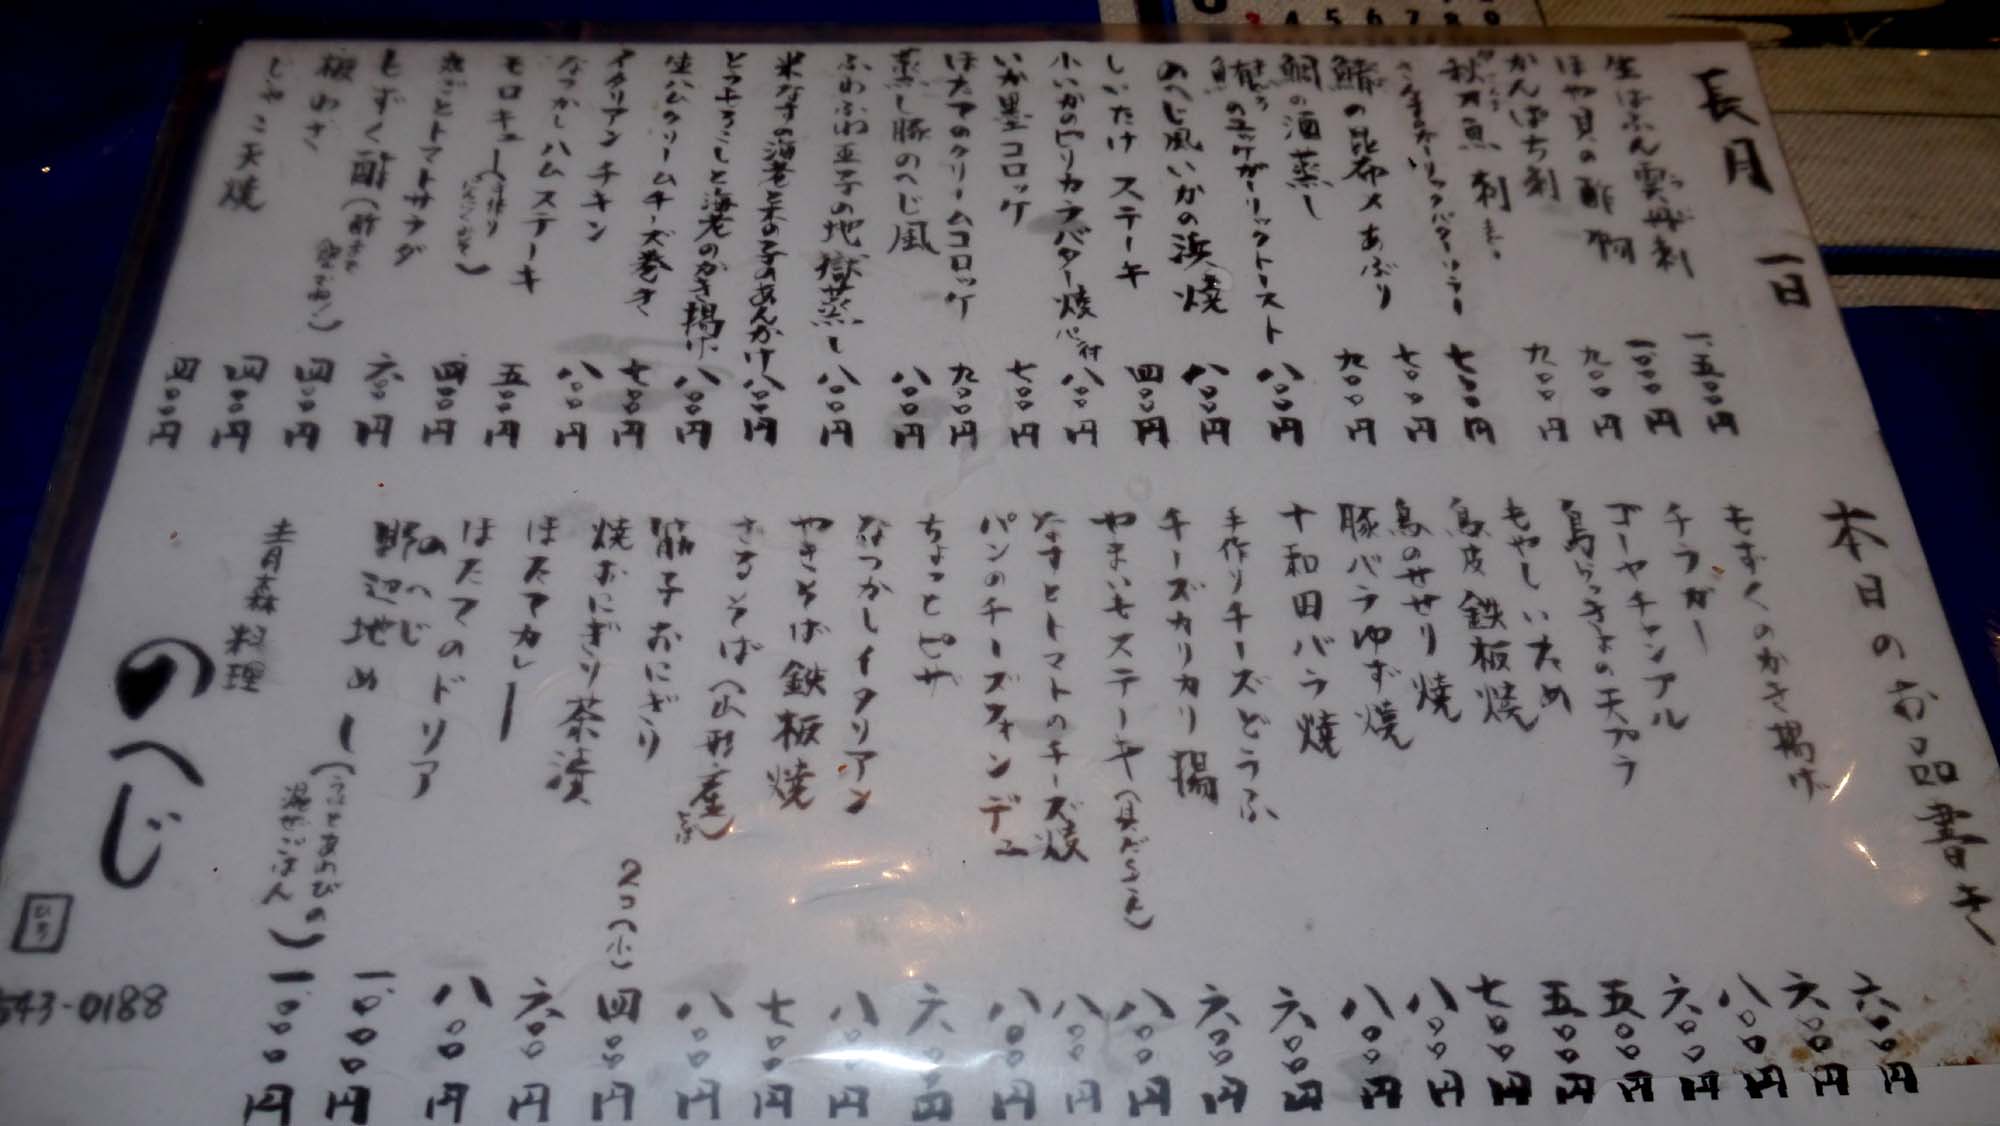 長月 一日
本日のお品書き
生ばふん雲丹刺 一、五〇〇円
ほや貝の酢物 一、〇〇〇円
かんぱち刺 九〇〇円
秋刀魚刺 九〇〇円
さんまのガーリックバターソテー 七〇〇円
鰆の昆布〆あぶり 七〇〇円
鯛の酒蒸し 九〇〇円
のユッケガーリックトースト 八〇〇円
のへじ風いかの浜焼 八〇〇円
しいたけステーキ 四〇〇円
小いかのピリカラバター焼 八〇〇円
いか墨コロッケ 七〇〇円
ほたてのクリームコロッケ 九〇〇円
蒸し豚のへじ風 八〇〇円
ふわふわ玉子の地獄蒸し 八〇〇円
米なすの海老と木の子のあんかけ 八〇〇円
とうもろこしと海老のかき揚げ 八〇〇円
生ハムクリームチーズ巻き 七〇〇円
イタリアンチキン 八〇〇円
なつかしハムステーキ 五〇〇円
モロキュー 四〇〇円
まごとトマトサラダ 六〇〇円
もずく酢 四〇〇円
板わさ 四〇〇円
じゃこ天焼 四〇〇円
もずくのかき揚げ 六〇〇円
チラガー 六〇〇円
ゴーヤチャンプル 八〇〇円
島らっきょの天プラ 六〇〇円
もやしいため 五〇〇円
鳥皮鉄板焼 五〇〇円
鳥のせせり焼 七〇〇円
豚バラゆず焼 八〇〇円
十和田バラ焼 八〇〇円
手作りチーズどうふ 六〇〇円
チーズカリカリ揚 六〇〇円
やまいもステーキ 八〇〇円
なすとトマトのチーズ焼 八〇〇円
パンのチーズフォンデュ 八〇〇円
ちょっとピザ 六〇〇円
なつかしイタリアン 八〇〇円
やきそば鉄板焼 七〇〇円
ざるそば(山形産) 八〇〇円
筋子おにぎり 2コ(小) 四〇〇円
焼おにぎり茶漬 六〇〇円
ほたてカレー 八〇〇円
ほたてのドリア 一、〇〇〇円
のへじ
野辺地めし(うにとあわびの混ぜごはん) 一、〇〇〇円
青森料理
のへじ
ひろ
543-0188
3 4 5 6 7 8 9